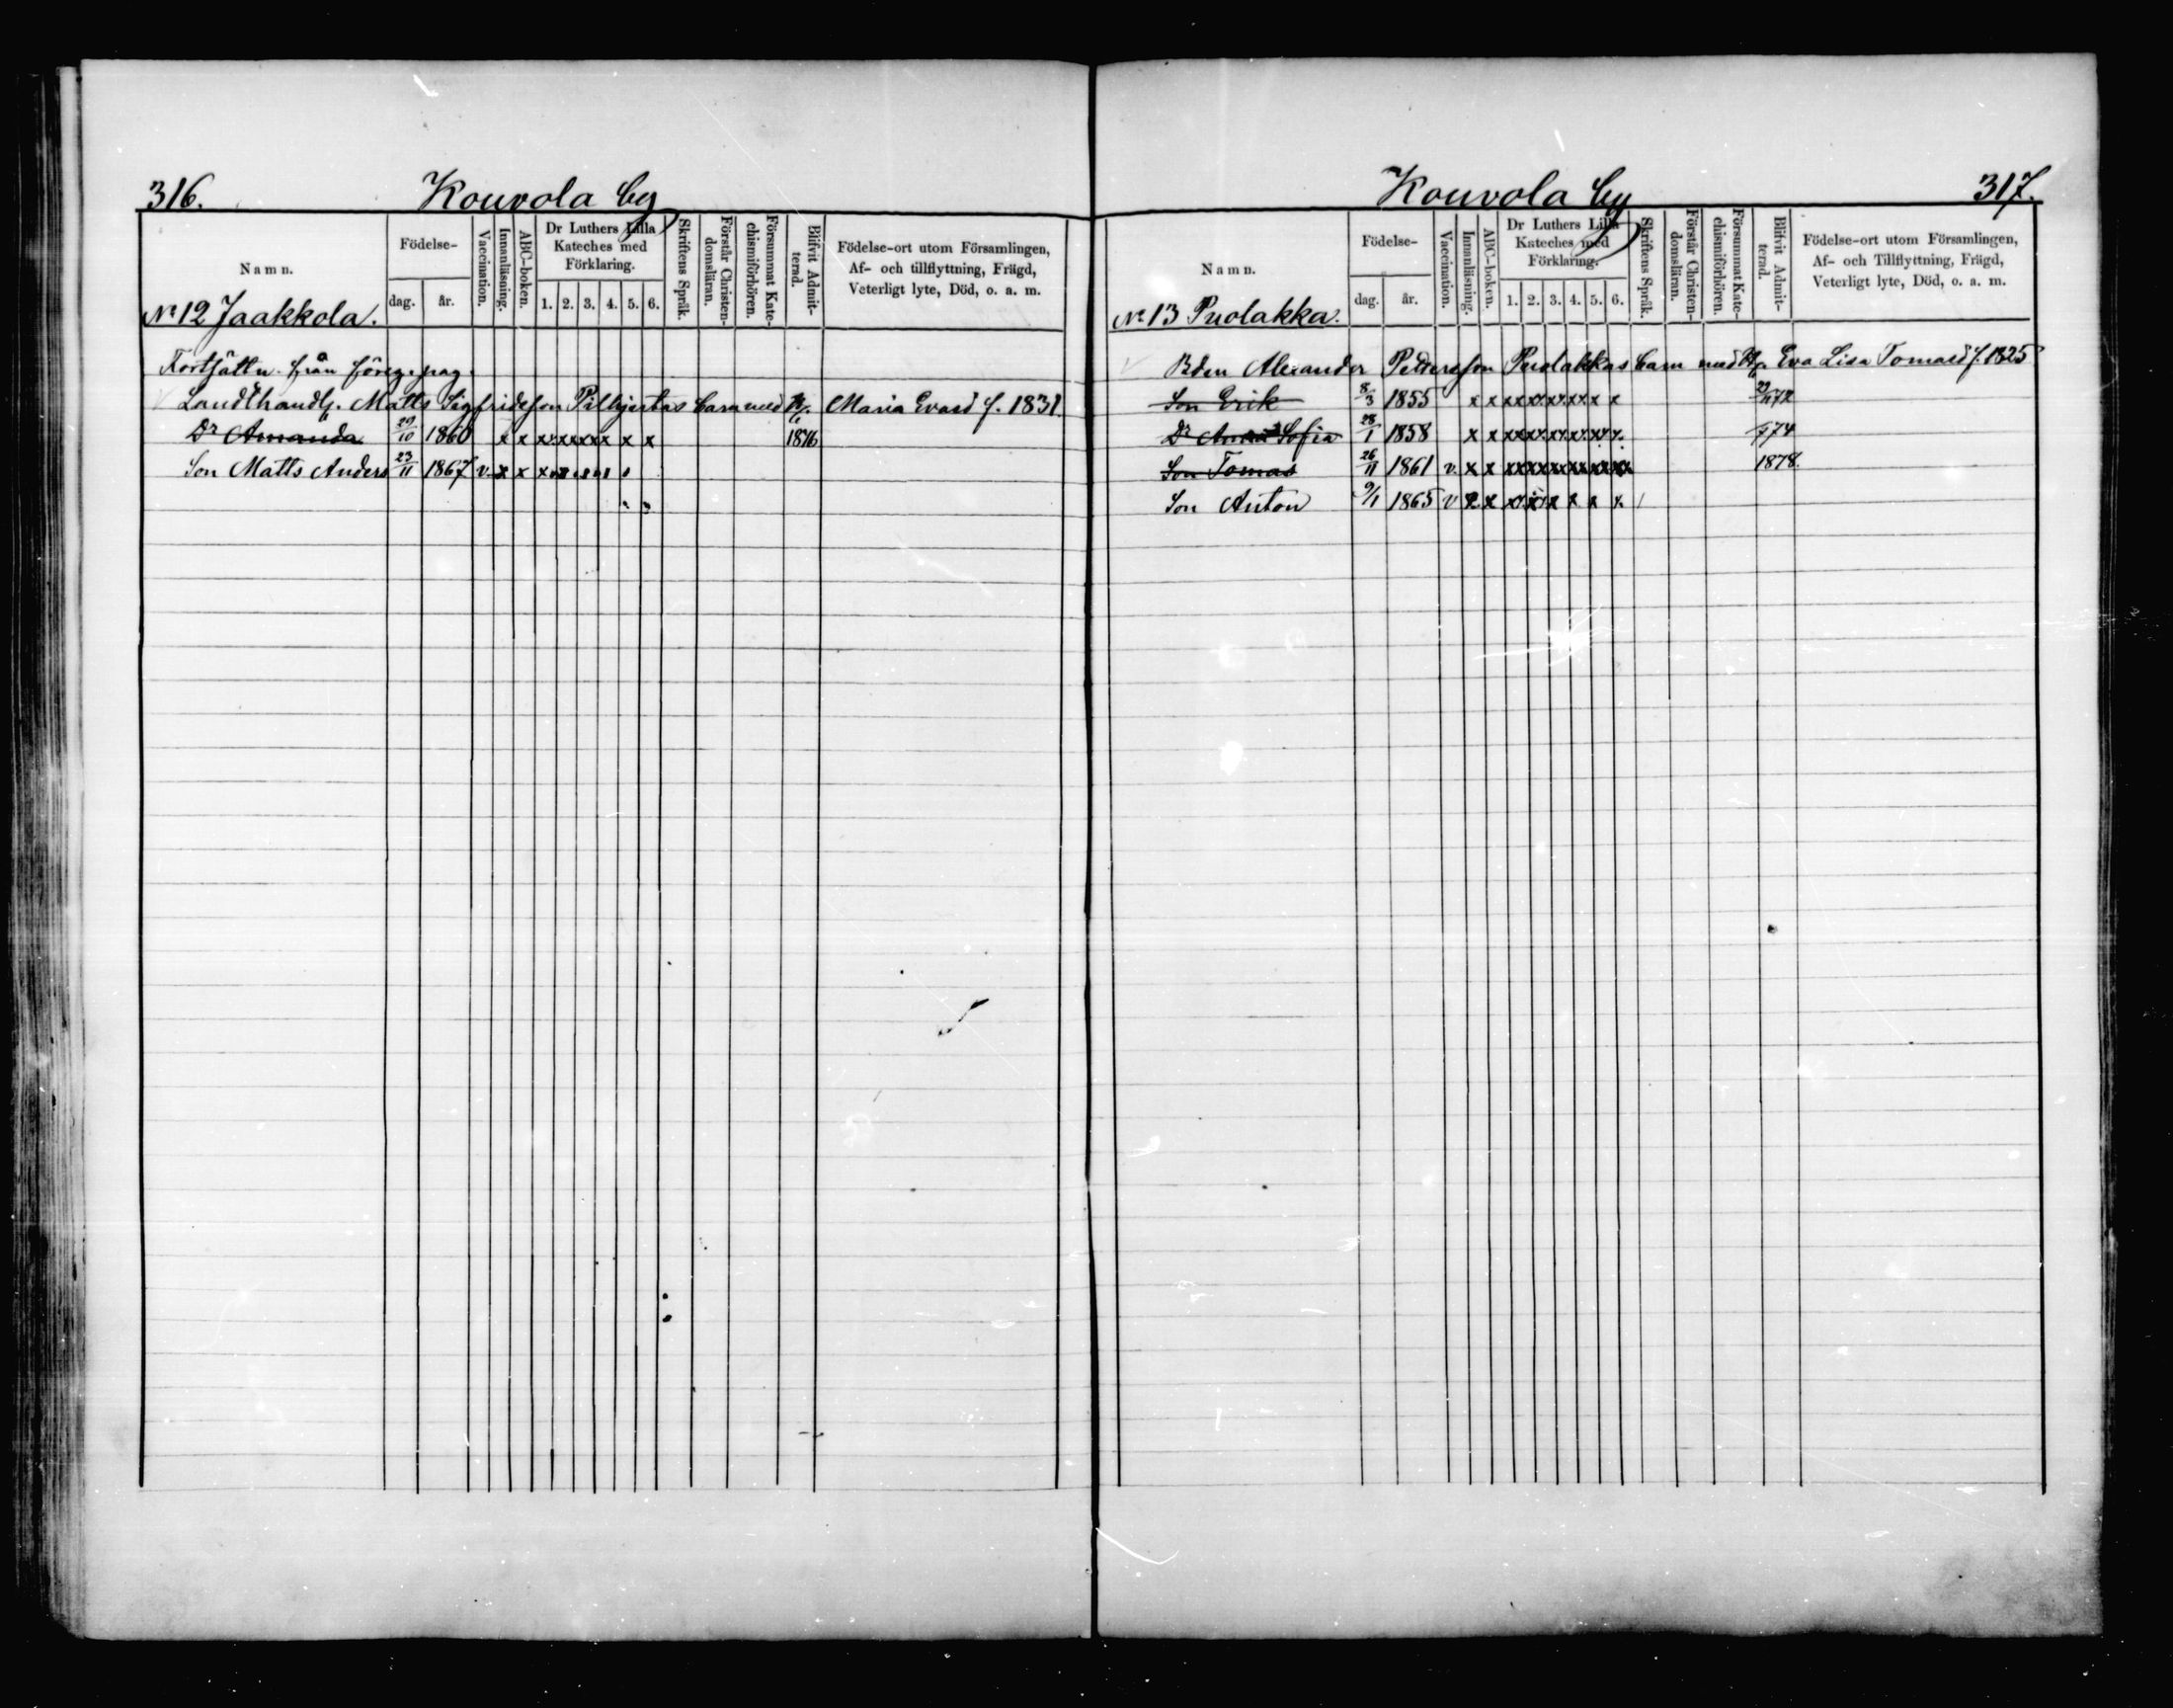 316. Kouvola by
Namn.
Födelse-
dag. år.
Vaccination.
Innanläsning.
ABC-boken.
Dr Luthers Lilla
Kateches med
Förklaring.
1. 2. 3. 4. 5. 6.
Skriftens Språk.
Förstår Christen-
domsläran.
Försummat Kate-
chismiförhören.
Blifvit Admit-
terad.
Födelse-ort utom Församlingen,
Af- och tillflyttning, Frägd,
Veterligt lyte, Död, o. a. m.
No 12 Jaakkola.
Fortsättn. från föreg. pag.
Landthandl. Matts Sigfridsson Pilhjertas barn med H. Maria Evasd f. 1831
Dr Amanda 29/10 1860 x x x x x x x x x 1876
Son Matts Anders 23/11 1867 v. x x x
Kouvola by 317.
Namn.
Födelse-
dag. år.
Vaccination.
Innanläsning.
ABC-boken.
Dr Luthers Lilla
Kateches med
Förklaring.
1. 2. 3. 4. 5. 6.
Skriftens Språk.
Förstår Christen-
domsläran.
Försummat Kate-
chismiförhören.
Blifvit Admit-
terad.
Födelse-ort utom Församlingen,
Af- och Tillflyttning, Frägd,
Veterligt lyte, Död, o. a. m.
No 13 Puolakka.
Bden Alexander Pettersson Puolakkas barn med H. Eva Lisa Tomasd f. 1825
Son Erik 8/3 1855 x x x x x x x x x x
Dr Anna Sofia 28/1 1858 x x x x x x x x x 74
Son Tomas 26/11 1861 v. x x x x x x x x x 1878.
Son Anton 9/1 1865 v x x x x x x x x